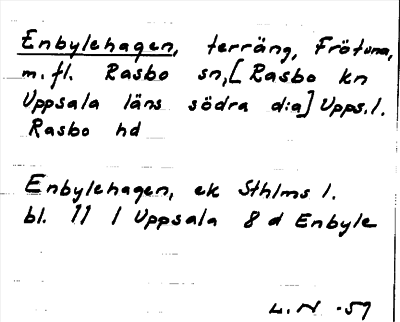 Enbylehagen, terräng, Frötuna,
m.fl. Rasbo sn, [Rasbo kn
Uppsala läns södra d:a] Upps.l.
Rasbo hd
Enbylehagen, ek Sthlms l.
bl. 11 / Uppsala 8 d Enbyle
L.N -57